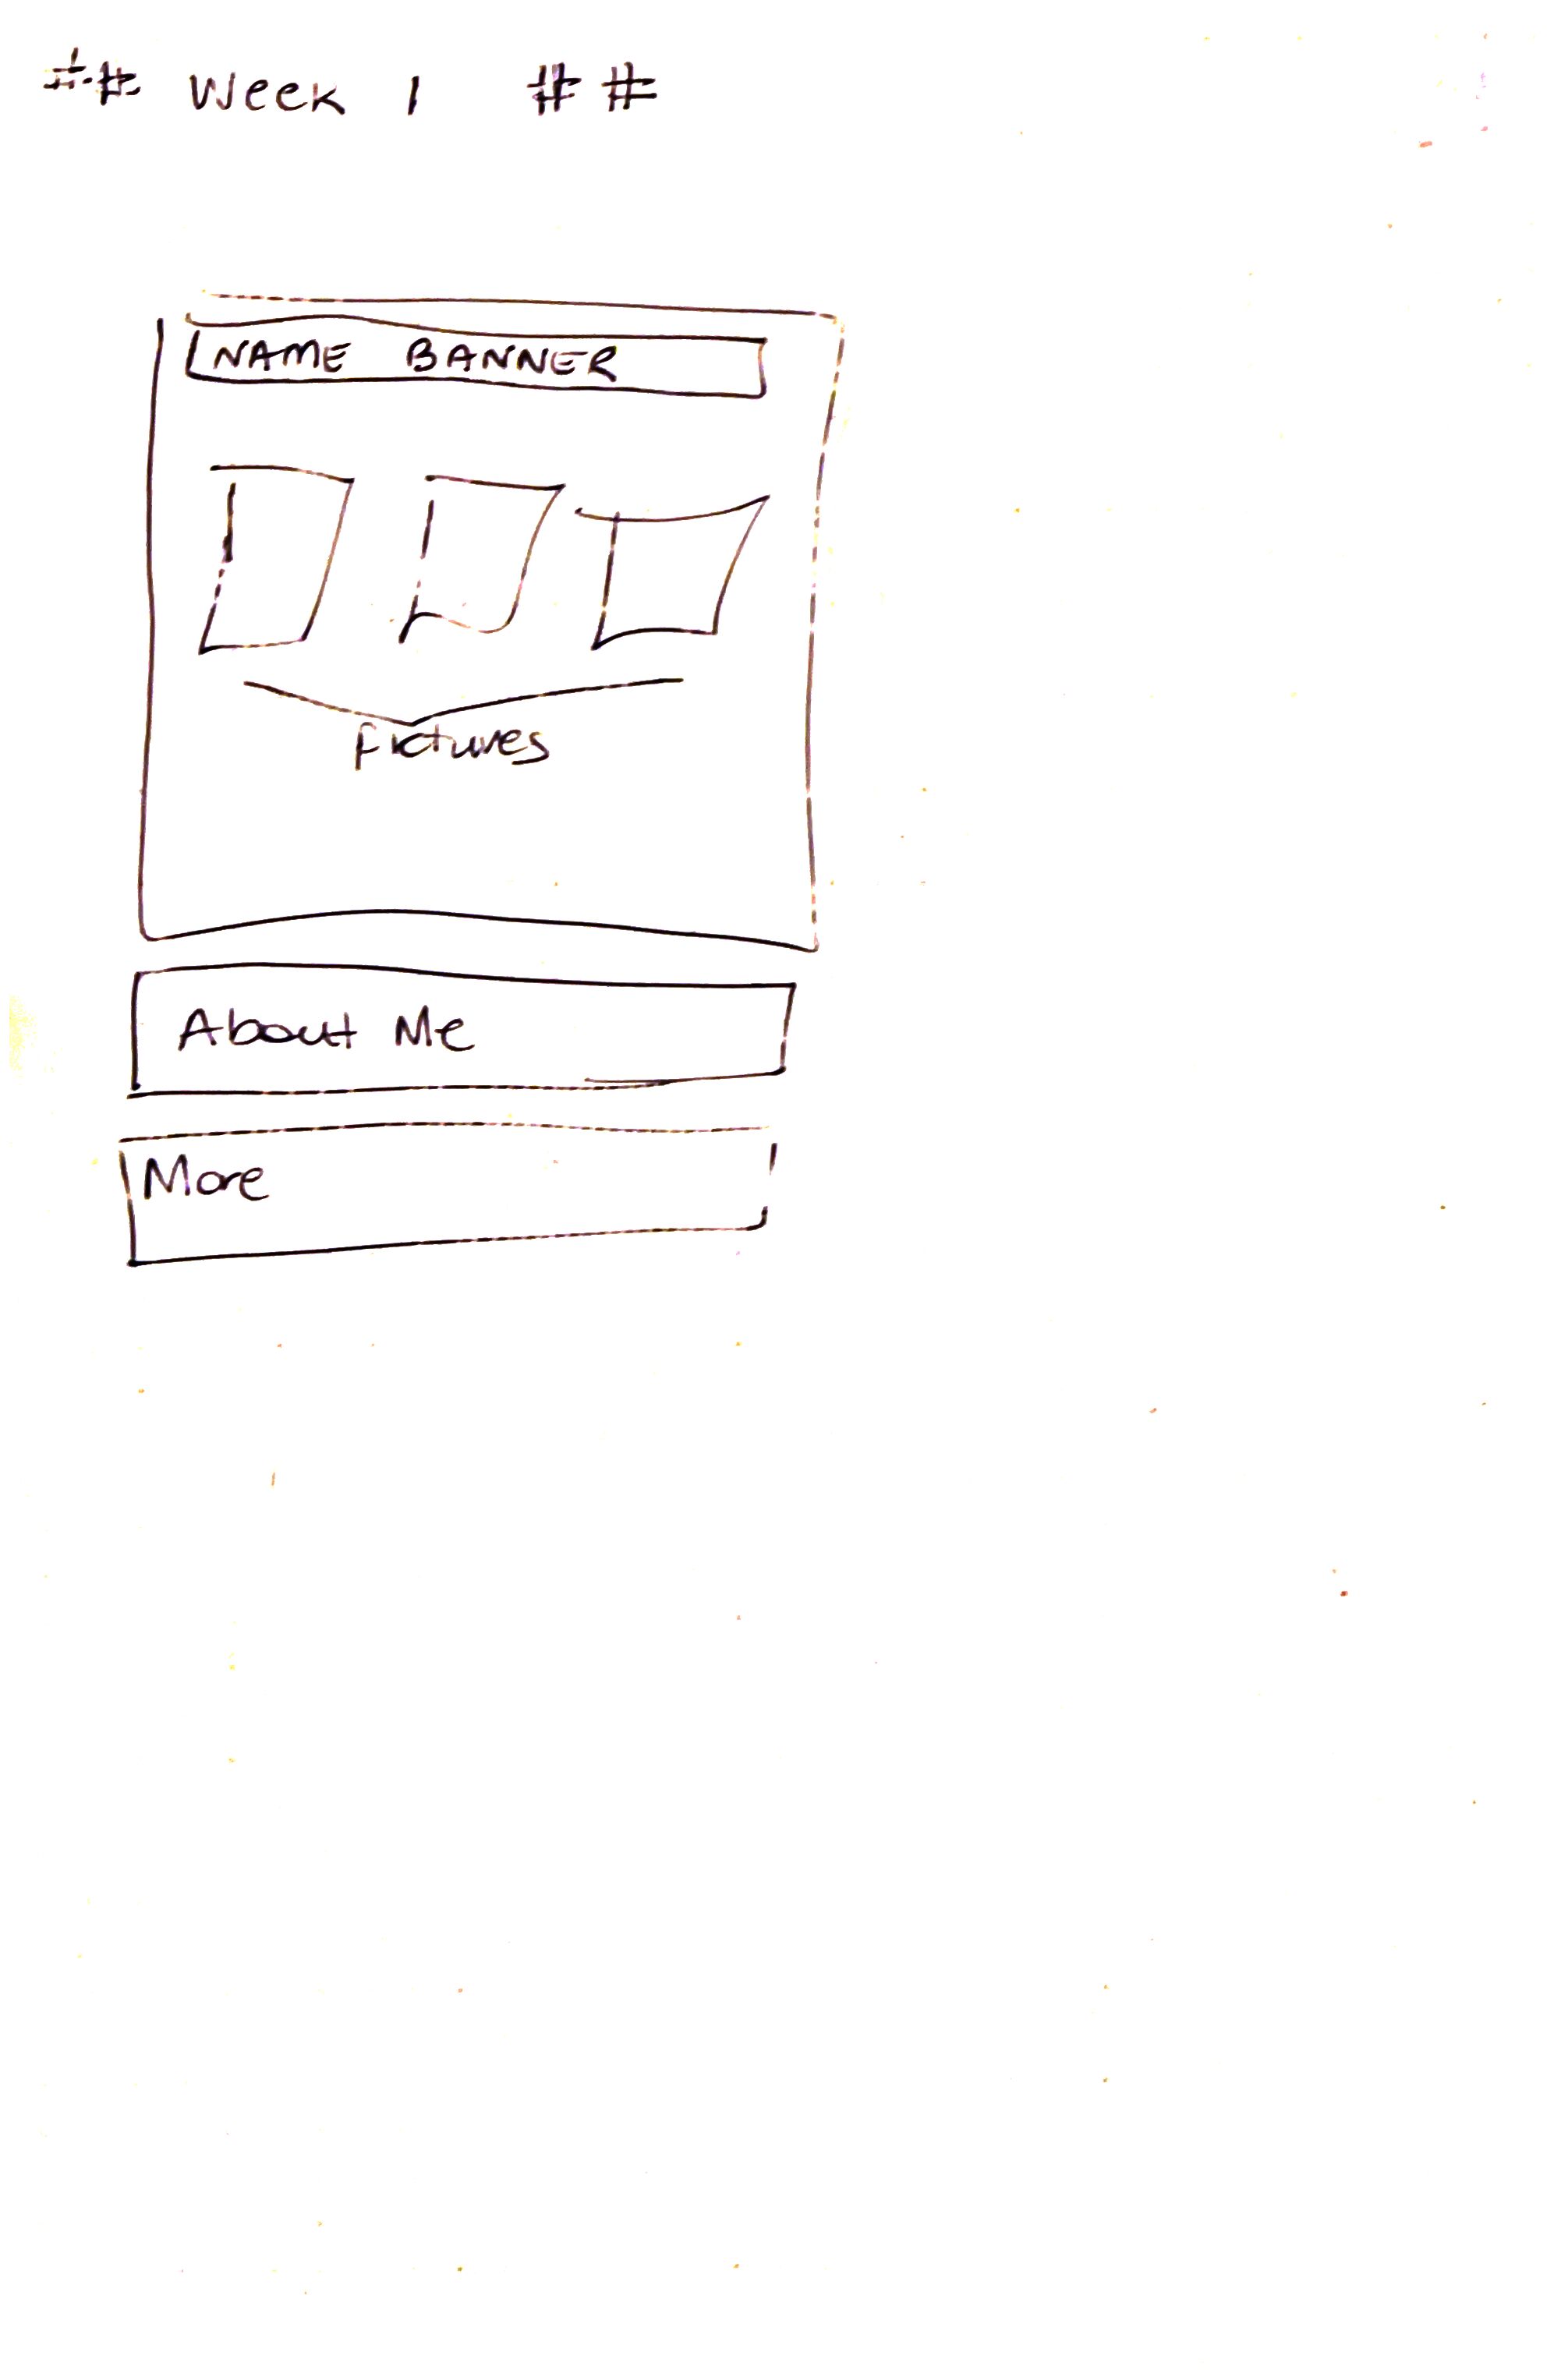 ## Week 1 ##
NAME BANNER
Pictures
About Me
More